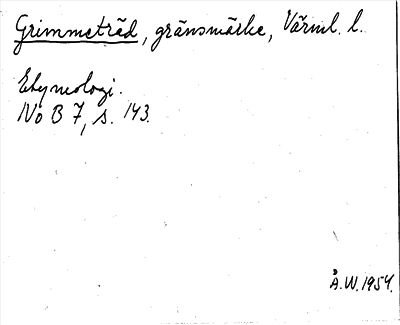 Grimmeträd, gränsmärke, Värml. l.
Etymologi.
No B 7, s. 143.
Å.W. 1954.